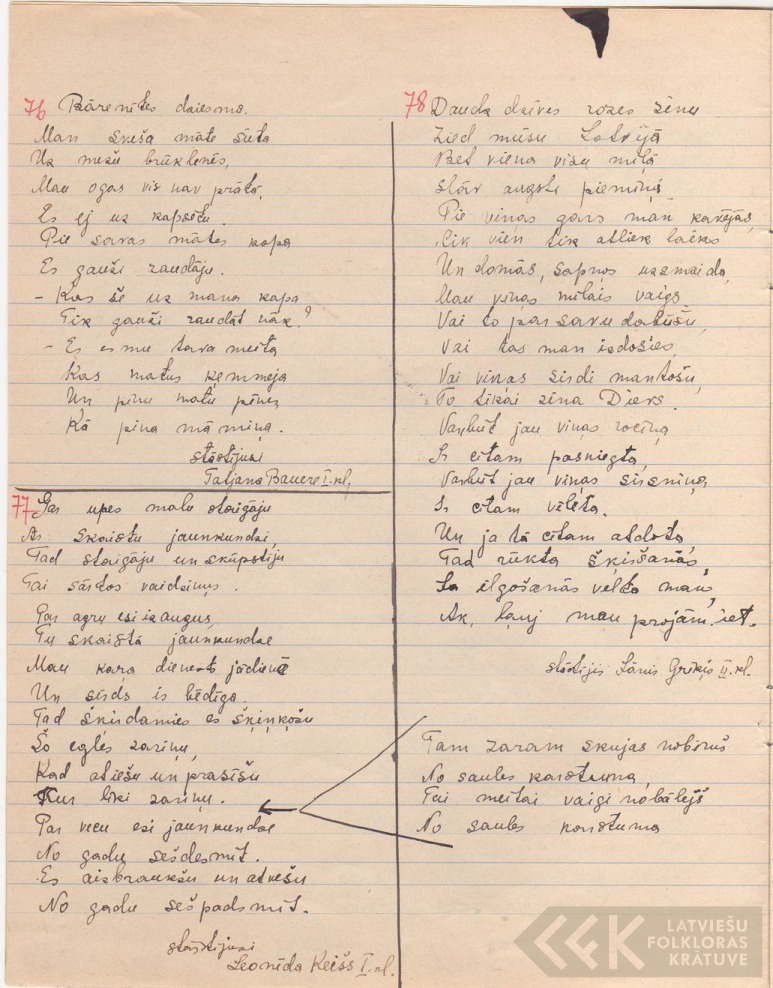 76 Bārenītes dziesma.
Man sveša māte sūta
Uz mežu brūklenēs,
Man ogas vis nav prātā,
Es ej uz kapsētu.
Pie savas mātes kapa
Es gauži raudāju.
- Kas še uz mana kapa
Tik gauži raudāt nāk?
- Es esmu tava meita
Kas matus ķemmēja
Un pinu matu pīnes
Kā pina māmiņa.
stāstijusi
Tatjana Bauere I.kl.
77 Gar upes malu staigāju
Ar skaistu jaunkundzi,
Tad staigāju un skūpstīju
Tai sārtos vaidziņus.
Par agru esi izaugus,
Tu skaistā jaunkundze
Man kara dienests jādienē
Un sirds ir bēdīga.
Tad šķirdamies es šķiņķošu
Šo egles zariņu,
Kad atiešu un prasīšu
Kur liki zariņu.
Par vecu esi jaunkundze
No gadu sešdesmit.
Es aizbraukšu un atvešu
No gadu sešpadsmit.
stāstijusi
Leonīda Keišs I.kl.
78 Daudz dzīves rozes zēnu
Zied mūsu Latvijā
Bet viena visu mīļā
stāv augsti piemiņā
Pie viņas gars man kavējās,
Cik vien tik atliek laiks
Un domās, sapņos uzsmaida,
Man viņas mīlais vaigs
Vai to par savu dabūšu,
Vai tas man izdosies,
Vai viņas sirdi mantošu,
To tikai zina Dievs.
Varbūt jau viņas rociņa
Ir citam pasniegta,
Varbūt jau viņas sirsniņa
Ir citam vēlēta.
Un ja tā citam atdota,
Tad rūkta šķiršanās,
Ja ilgošanās velto mans,
Ak, ļauj man projām iet.
stāstijis Jānis Grēķis II.kl.
Tam zaram skujas nobirus
No saules karstuma,
Tai meitai vaigi nobālējš
No saules karstuma
LATVIEŠU
FOLKLORAS
KRĀTUVE